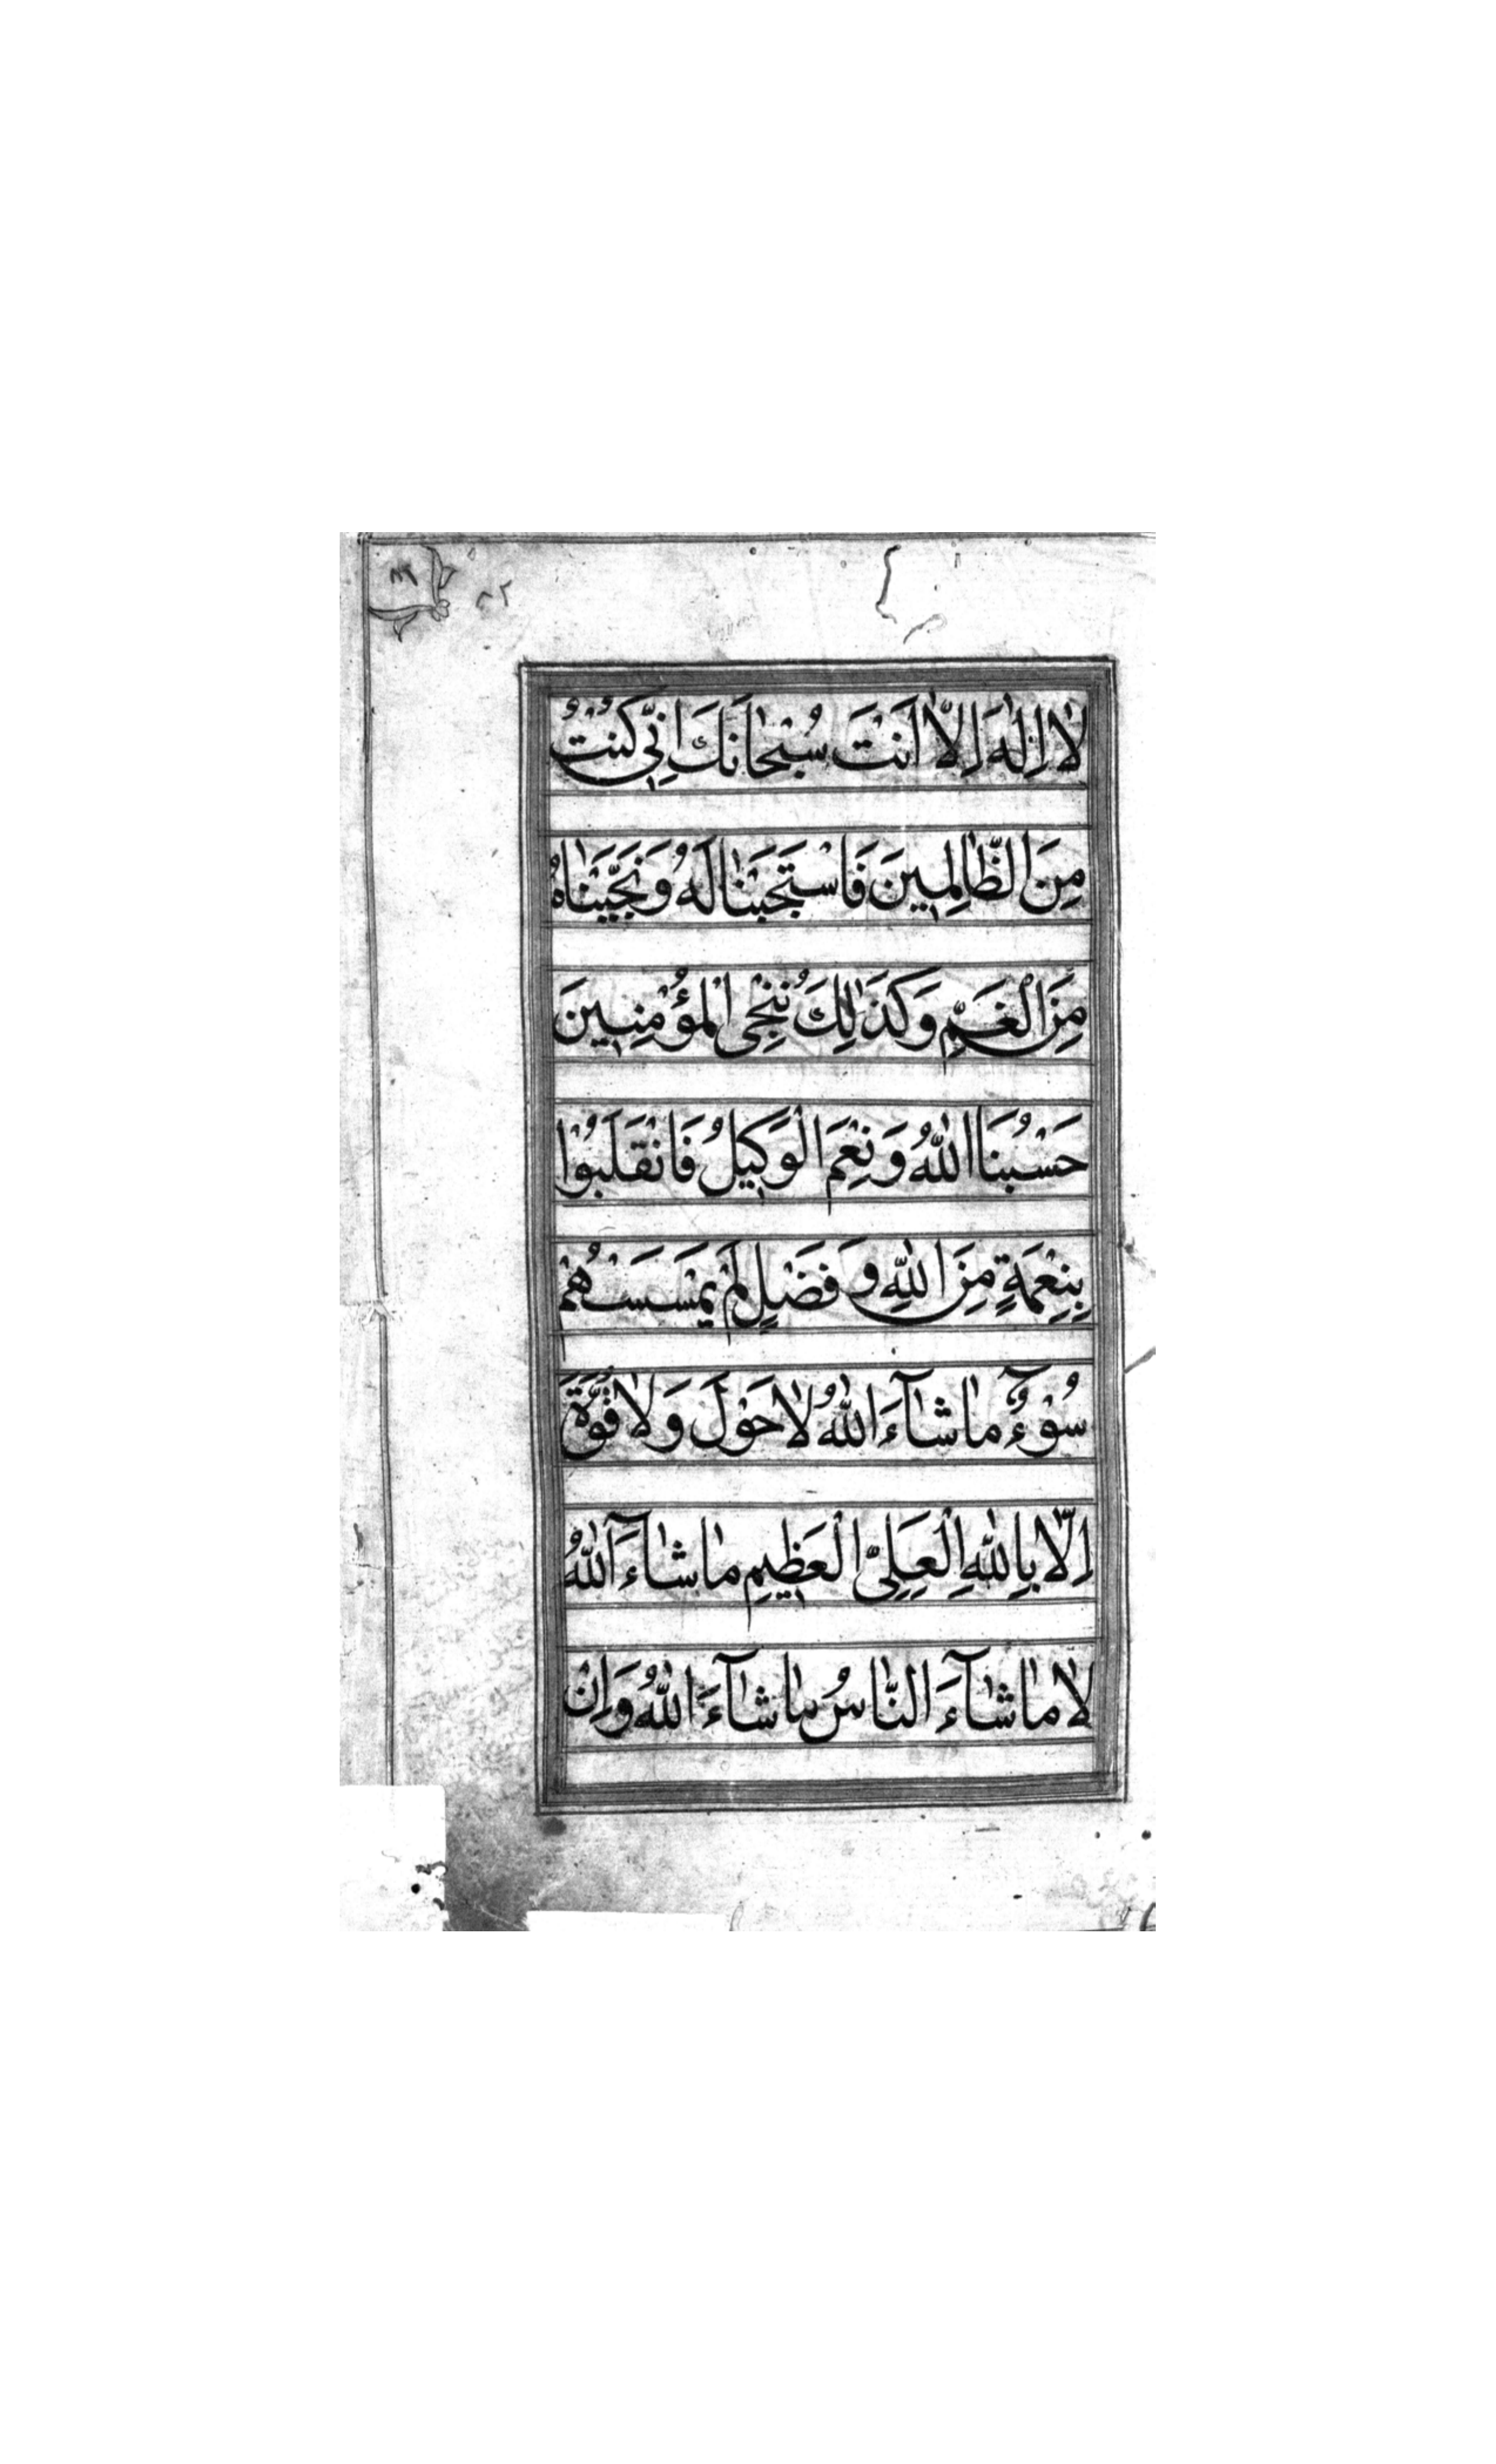 لَا اِلٰهَ اِلَّا اَنْتَ سُبْحَانَكَ اِنِّي كُنْتُ
مِنَ الظَّالِمِينَ فَاسْتَجَبْنَا لَهُ وَنَجَّيْنَاهُ
مِنَ الْغَمِّ وَكَذٰلِكَ نُنْجِى الْمُؤْمِنِينَ
حَسْبُنَا اللّٰهُ وَنِعْمَ الْوَكِيلُ فَانْقَلَبُوْا
بِنِعْمَةٍ مِنَ اللّٰهِ وَفَضْلٍ لَمْ يَمْسَسْهُمْ
سُوْءٌ مَاشَآءَ اللّٰهُ لَا حَوْلَ وَلَا قُوَّةَ
اِلَّا بِاللّٰهِ الْعَلِىِّ الْعَظِيمِ مَاشَاءَ اللّٰهُ
لَا مَاشَآءَ النَّاسُ مَاشَآءَ اللّٰهُ وَاِنْ